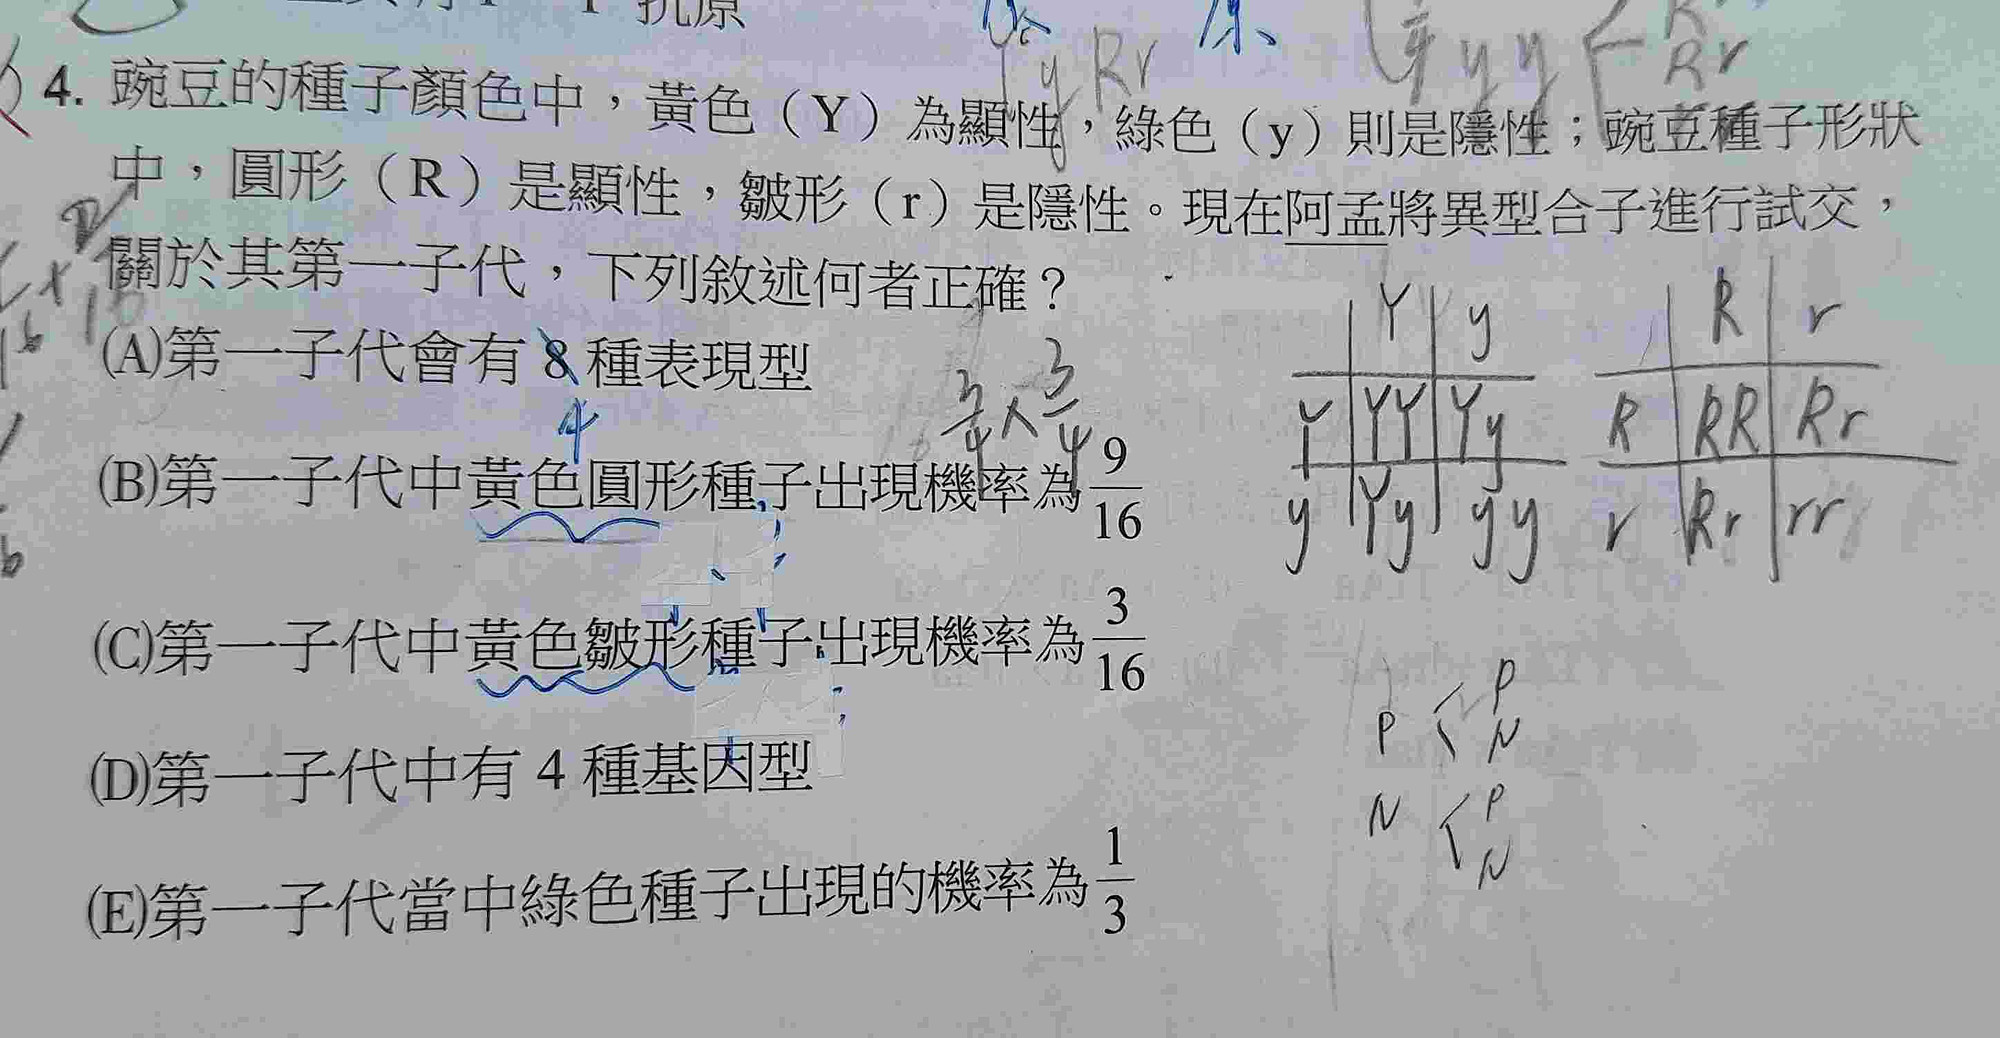 抗原
yRr
yy
R
Rr
4. 豌豆的種子顏色中，黃色（Y）為顯性，綠色（y）則是隱性；豌豆種子形狀
中，圓形（R）是顯性，皺形（r）是隱性。現在阿孟將異型合子進行試交，
關於其第一子代，下列敘述何者正確？
(A)第一子代會有8種表現型
4
(B)第一子代中黃色圓形種子出現機率為9/16
(C)第一子代中黃色皺形種子出現機率為3/16
(D)第一子代中有4種基因型
(E)第一子代當中綠色種子出現的機率為1/3
3/4×3/4
Y y
Y YY Yy
y Yy yy
R r
R RR Rr
r Rr rr
P P
N
N P
N